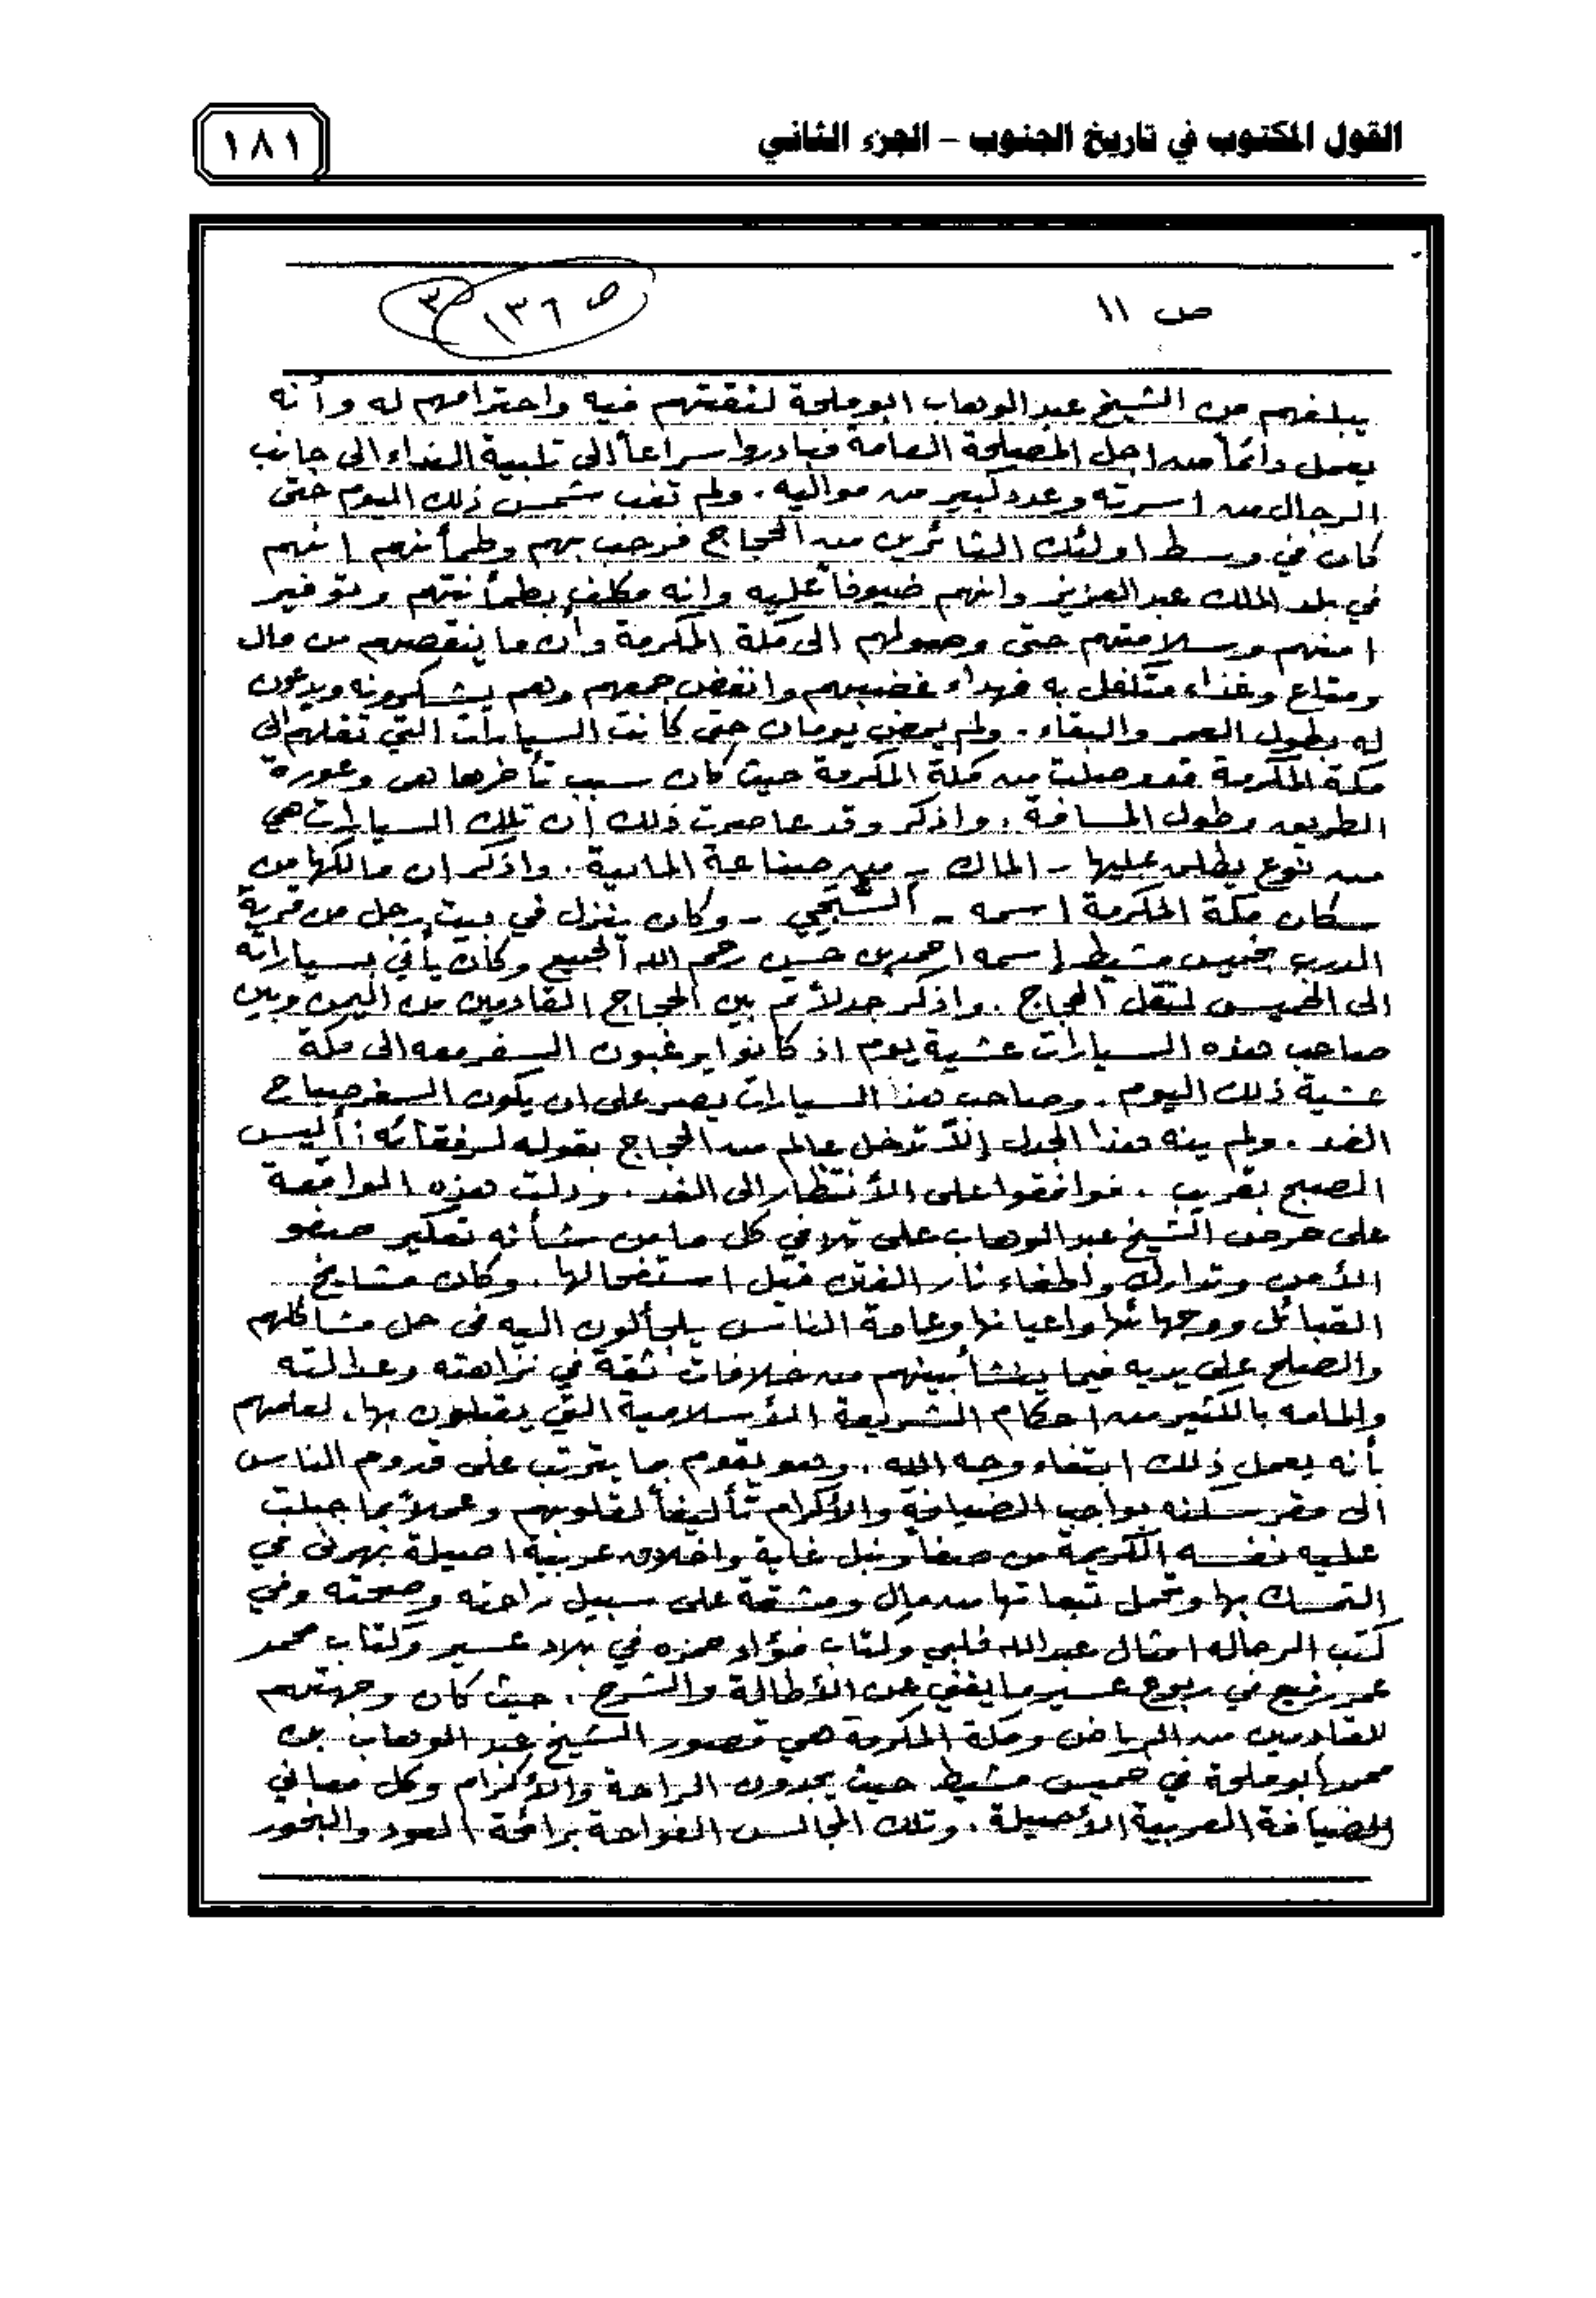 القول المكتوب في تاريخ الجنوب – الجزء الثاني
١٨١
ص ١١
ص ١٣٦
٣
يبلغهم من الشيخ عبدالوهاب ابوملحة لثقتهم فيه واحترامهم له وأنه
يعمل دائماً من اجل المصلحة العامة فبادروا سراعاً الى تلبية النداء الى جانب
الرجال من اسرته وعدد كبير من مواليه . ولم تغب شمس ذلك اليوم حتى
كان في وسط اولئك الثائرين من الحجاج فرحب بهم وطمأنهم انهم
في بلد الملك عبدالعزيز وانهم ضيوفاً عليه وانه مكلف بطمأنتهم وتوفير
امنهم وسلامتهم حتى وصولهم الى مكة المكرمة وأن ما ينقصهم من مال
ومتاع وغذاء متكفل به فهداء غضبهم وانفض جمعهم وهم يشكرونه ويدعون
له بطول العمر والبقاء . ولم يمض يومان حتى كانت السيارات التي تقلهم الى
مكة المكرمة قد وصلت من مكة المكرمة حيث كان سبب تأخرها هي وعورة
الطريق وطول المسافة . واذكر وقد عاصرت ذلك أن تلك السيارات هي
من نوع يطلق عليها - الماك - من صناعة المانية . واذكر ان مالكها من
سكان مكة المكرمة اسمه - الشبحي - وكان ينزل في بيت رجل من قرية
الدرب بخميس مشيط اسمه احمد بن حسين رحم الله الجميع وكان يأتي بسياراته
الى الخميس لنقل الحجاج . واذكر جدلاً تم بين الحجاج القادمين من اليمن وبين
صاحب هذه السيارات عشية يوم اذ كانوا يرغبون السفر معه الى مكة
عشية ذلك اليوم . وصاحب هذا السيارات يصر على ان يكون السفر صباح
الغد . ولم ينه هذا الجدل إلاّ تدخل عالم من الحجاج بقوله لرفقائه : أليس
الصبح بقريب . فوافقوا على الأنتظار الى الغد . ودلت هذه الواقعة
على حرص الشيخ عبدالوهاب على تلافي كل ما من شأنه تعكير صفو
الأمن وتدارك وأطفاء نار الفتن قبل استفحالها . وكان مشايخ
القبائل ووجهائها واعيانها وعامة الناس يلجألون اليه في حل مشاكلهم
والصلح على يديه فيما ينشأ بينهم من خلافات ثقة في نزاهته وعدالته
والمامه بالكثير من احكام الشريعة الأسلامية التي يقبلون بها . لعلمهم
بأنه يعمل ذلك ابتغاء وجه الله . وهو يقوم بما يترتب على قدوم الناس
الى مقر سكنه بواجب الضيافة والأكرام تأليفاً لقلوبهم وعملاً بما جبلت
عليه نفسه الكريمة من صفاء ونبل غاية واخلاق عربية اصيلة في
التمسك بها وتحمل تبعاتها من مال ومشقة على سبيل راحته وصحته وفي
كتب الرحاله امثال عبدالله فلبي وكتاب فؤاد حمزه في بلاد عسير وكتاب محمد
عمر رفيع في ربوع عسير ما يغني عن الأطالة والشرح . حيث كان وجهتهم
للقادمين من الرياض ومكة المكرمة هي قصور الشيخ عبد الوهاب بن
محمد أبوملحة في خميس مشيط حيث يجدون الراحة والأكرام وكل معاني
الضيافة العربية الأصيلة . وتلك المجالس الفواحة برائحة العود والبخور